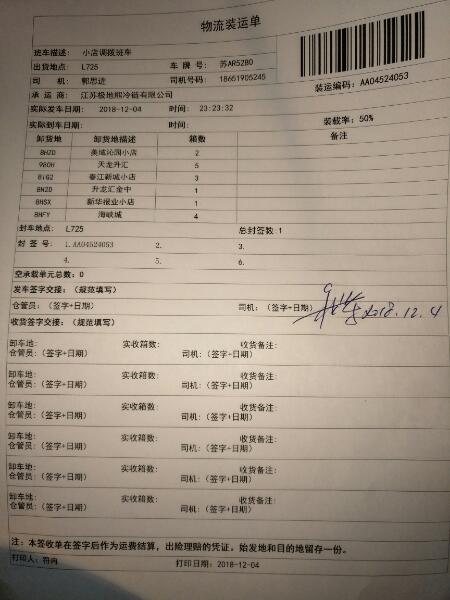 物流装运单
班车描述: 小店调拨班车
出货地点: L725 车 牌 号: 苏AR5280
司 机: 郭思进 司机号码: 18651905245
装运编码: AA04524053
承 运 商: 江苏极地熊冷链有限公司
实际发车日期: 2018-12-04 时间: 23:23:32
实际到车日期: 时间: 装载率: 50%
卸货地 卸货地描述 箱数 备注
BHZD 美域沁园小店 2
980H 天龙升汇 5
BTG2 春江新城小店 3
BN2D 升龙汇金中 1
BHSX 新华报业小店 1
BHFY 海峡城 4
封车地点: L725 总封签数:1
封 签 号: 1.AA04524053 2. 3.
4. 5. 6.
空承载单元总数: 0
发车签字交接: (规范填写)
仓管员: (签字+日期) 司机: (签字+日期) 2018.12.4
收货签字交接: (规范填写)
卸车地: 实收箱数: 收货备注:
仓管员: (签字+日期) 司机: (签字+日期)
卸车地: 实收箱数: 收货备注:
仓管员: (签字+日期) 司机: (签字+日期)
卸车地: 实收箱数: 收货备注:
仓管员: (签字+日期) 司机: (签字+日期)
卸车地: 实收箱数: 收货备注:
仓管员: (签字+日期) 司机: (签字+日期)
卸车地: 实收箱数: 收货备注:
仓管员: (签字+日期) 司机: (签字+日期)
卸车地: 实收箱数: 收货备注:
仓管员: (签字+日期) 司机: (签字+日期)
注: 本签收单在签字后作为运费结算, 出险理赔的凭证, 始发地和目的地留存一份。
打印人: 符冉 打印日期: 2018-12-04